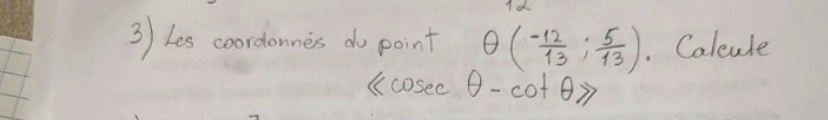 12
3) Les coordonnés du point θ (-12/13 ; 5/13). Calcule
≪cosec θ - cot θ≫